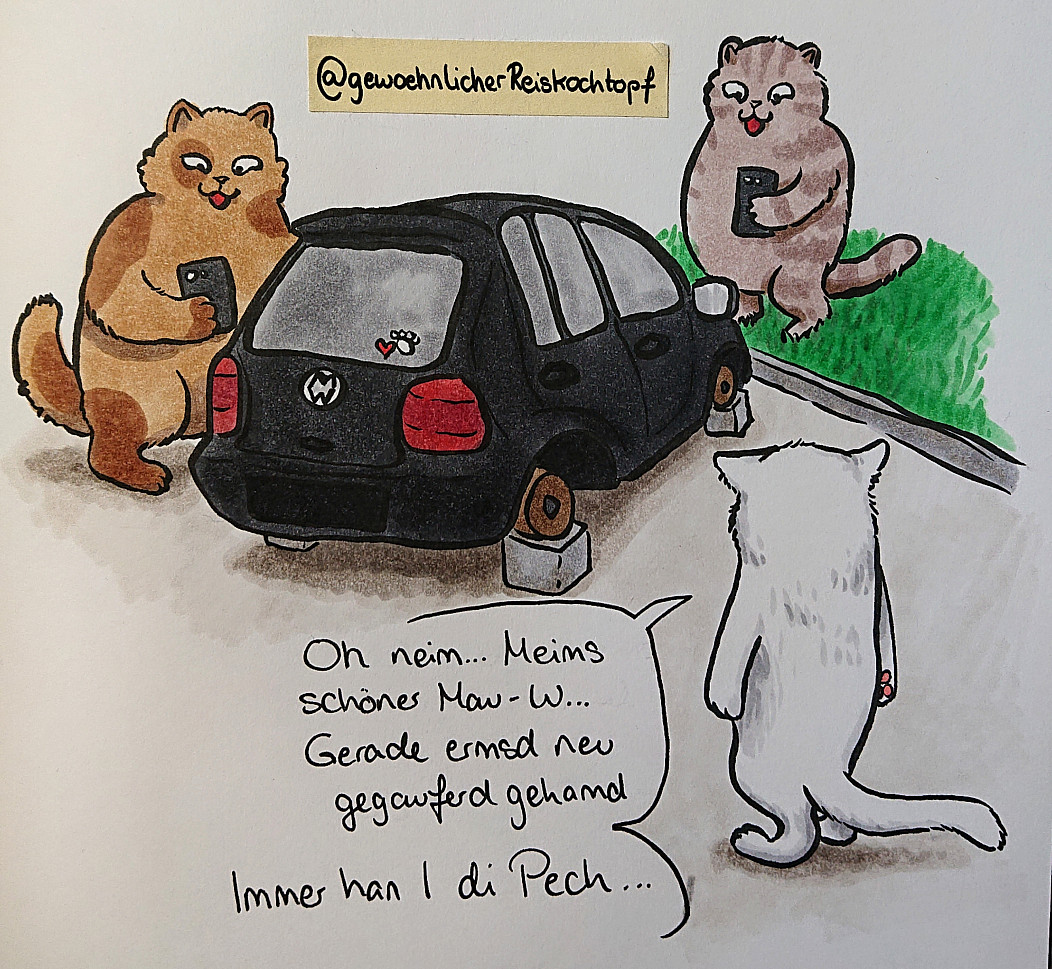 @gewoehnlicherReiskochtopf
Oh neim... Meims
schönes Mau-W...
Gerade ermsd neu
gegauferd gehamd
Immer han I di Pech...